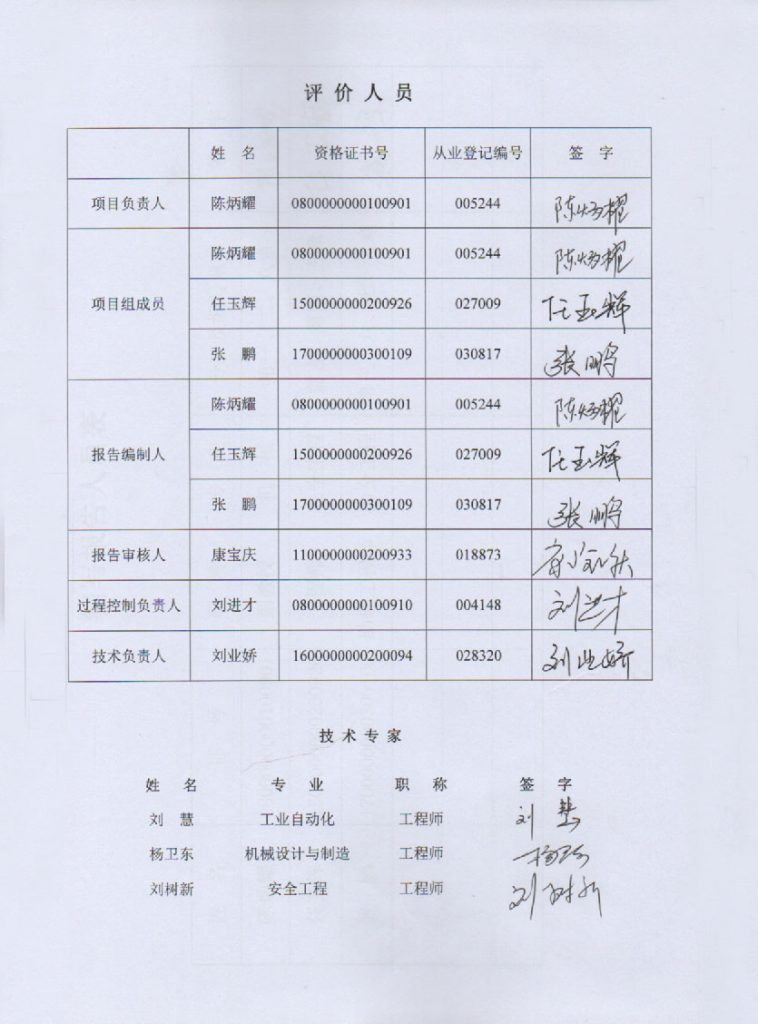 评价人员
姓 名 资格证书号 从业登记编号 签 字
项目负责人 陈炳耀 0800000000100901 005244 陈炳耀
陈炳耀 0800000000100901 005244 陈炳耀
项目组成员 任玉辉 1500000000200926 027009 任玉辉
张 鹏 1700000000300109 030817 张鹏
陈炳耀 0800000000100901 005244 陈炳耀
报告编制人 任玉辉 1500000000200926 027009 任玉辉
张 鹏 1700000000300109 030817 张鹏
报告审核人 康宝庆 1100000000200933 018873
过程控制负责人 刘进才 0800000000100910 004148 刘进才
技术负责人 刘业娇 1600000000200094 028320 刘业娇
技术专家
姓 名 专 业 职 称 签 字
刘 慧 工业自动化 工程师 刘慧
杨卫东 机械设计与制造 工程师
刘树新 安全工程 工程师 刘树新